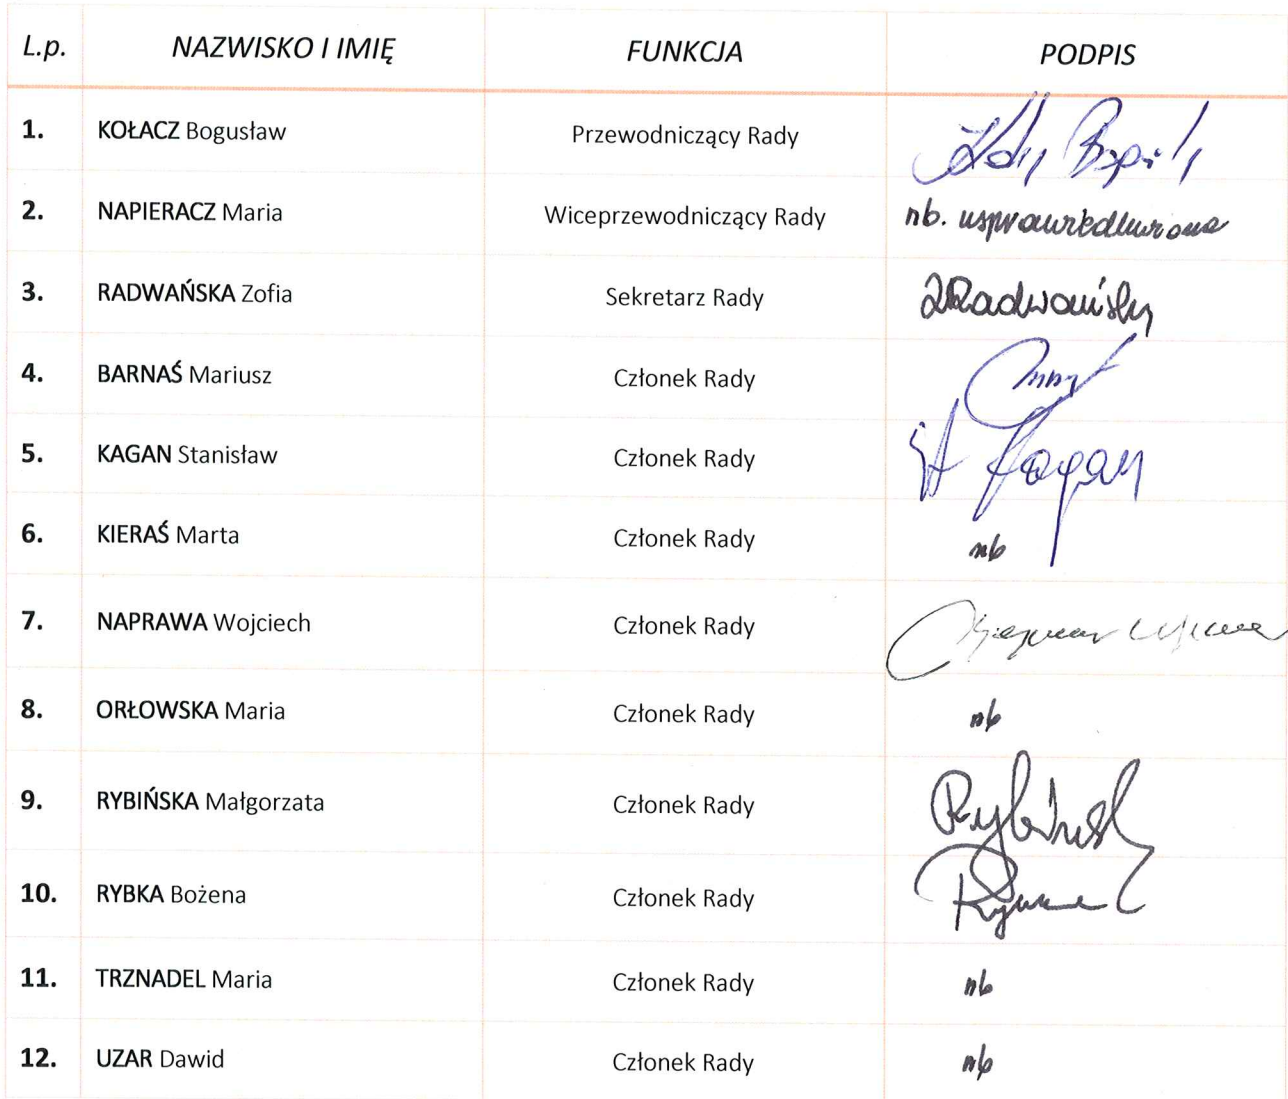 L.p. NAZWISKO I IMIĘ FUNKCJA PODPIS
1. KOŁACZ Bogusław Przewodniczący Rady
2. NAPIERACZ Maria Wiceprzewodniczący Rady nb. usprawiedliwiona
3. RADWAŃSKA Zofia Sekretarz Rady ZRadwańska
4. BARNAŚ Mariusz Członek Rady
5. KAGAN Stanisław Członek Rady St Kagan
6. KIERAŚ Marta Członek Rady nb
7. NAPRAWA Wojciech Członek Rady
8. ORŁOWSKA Maria Członek Rady nb
9. RYBIŃSKA Małgorzata Członek Rady Rybińska
10. RYBKA Bożena Członek Rady
11. TRZNADEL Maria Członek Rady nb
12. UZAR Dawid Członek Rady nb